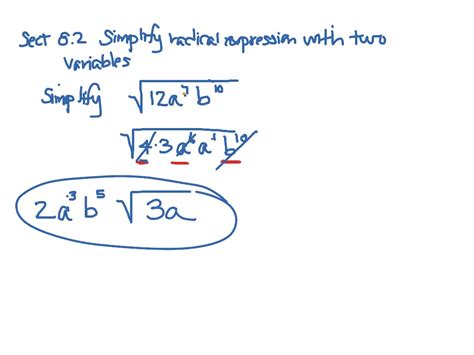 Sect 8.2 Simplify radical expression with two
variables
Simplify √12a⁷b¹⁰
√4·3a⁶a¹b¹⁰
2a³b⁵√3a